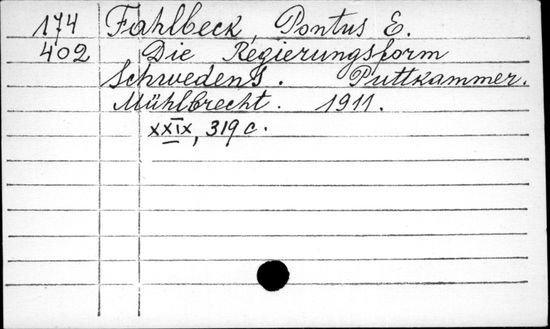 174 Fahlbeck, Pontus E.
402 Die Regierungsform
Schwedens. Puttkammer.
Mühlbrecht. 1911.
XXIX, 319 c.